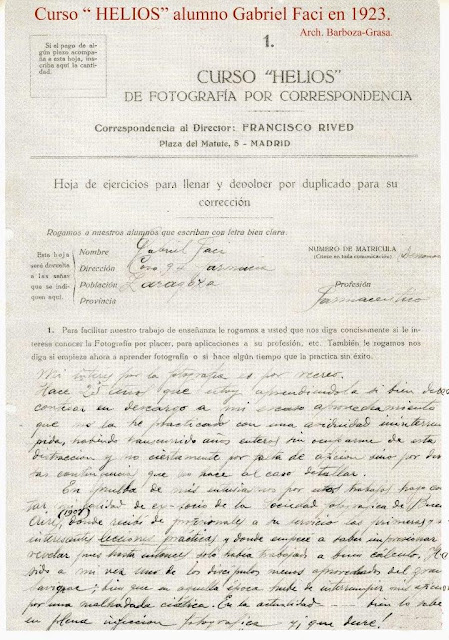 Curso “ HELIOS” alumno Gabriel Faci en 1923.
Arch. Barboza-Grasa.
Si el pago de al-
gún plazo acompa-
ña a esta hoja, ins-
criba aquí la canti-
dad.
1.
CURSO "HELIOS"
DE FOTOGRAFÍA POR CORRESPONDENCIA
Correspondencia al Director: FRANCISCO RIVED
Plaza del Matute, 5 - MADRID
Hoja de ejercicios para llenar y devolver por duplicado para su
corrección
Rogamos a nuestros alumnos que escriban con letra bien clara.
Esta hoja
será devuelta
a las señas
que se indi-
quen aquí.
Nombre Gabriel Faci
Dirección Coso 94 Farmacia
Población Zaragoza
Provincia
NUMERO DE MATRICULA
(Citese en toda comunicación)
Profesión
Farmacéutico
1. Para facilitar nuestro trabajo de enseñanza le rogamos a usted que nos diga concisamente si le in-
teresa conocer la Fotografía por placer, para aplicaciones a su profesión, etc. También le rogamos nos
diga si empieza ahora a aprender fotografía o si hace algún tiempo que la practica sin éxito.
Mi interes por la fotografia es por recreo.
Hace 25 años que estoy aprendiendola si bien debo
en descargo a mi escaso aprovechamiento
que no la he practicado con una actividad ininterrum
pida, habiendo transcurrido años enteros sin ocuparme de esta
distraccion y no ciertamente por falta de aficion sino por
contingencias que no hace al caso detallar.
En prueba de mis por estos trabajos hago cons
tar calidad de ex-socio de la Sociedad fotografica de Buenos
Aires, (1908) donde recibi de profesionales a su servicio las primeras y
interesantes lecciones practicas y donde empecé a saber impresionar
revelar pues hasta entonces solo habia trabajado a buen calculo. He
sido a mi vez uno de los discipulos menos aprovechados del gran
bien que en aquella época hube de interrumpir mis
por una malhadada ciática. En la actualidad bien lo sabe
en plena fotografica y ¡que dure!